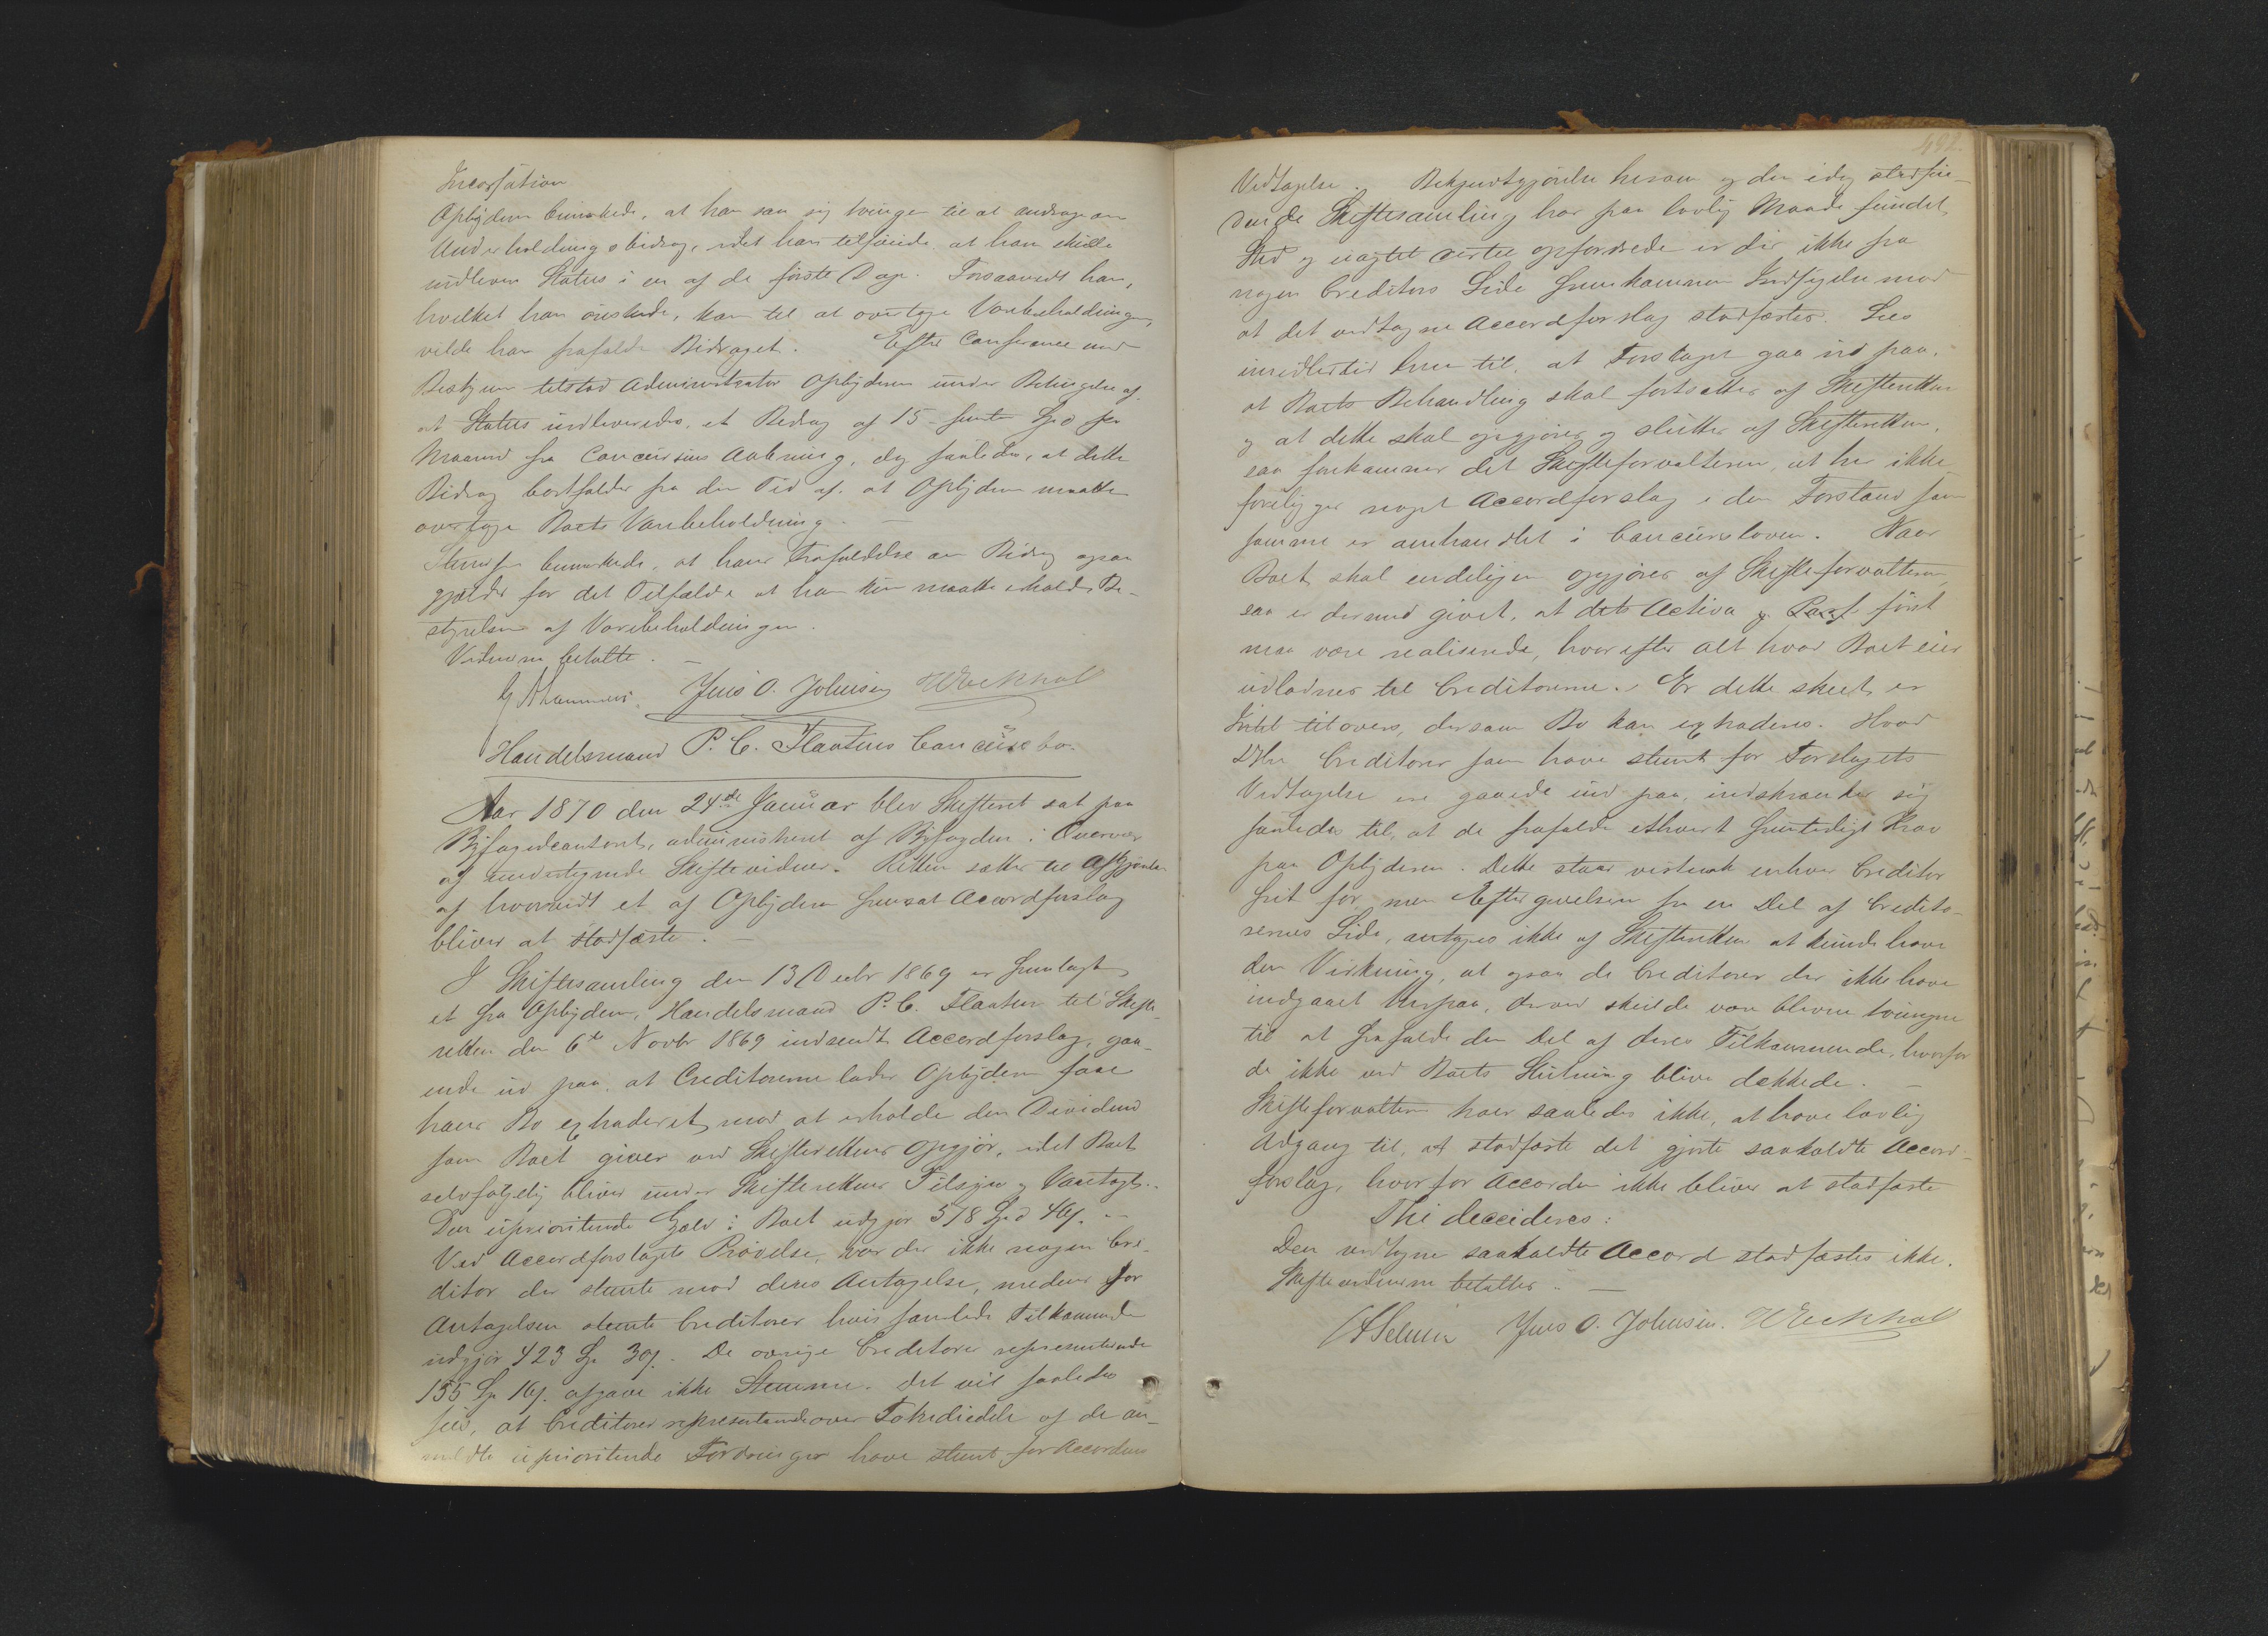 Incassation
Opbyderen bemærkede, at han saa sig tvungen til at andrage om
Underholdningsbidrag, idet han tilføiede at han skulde
indlevere Status i en af de første Dage. Forsaavidt han,
hvilket han ønskede, kom til at overtage Varebeholdningen,
vilde han frafalde Bidraget. Efter Conference med
Bestyreren tilstod Administrator Opbyderen under Betingelse af
at Status indleveredes, et Bidrag af 15 femten Spd per
Maaned fra Concursens Aabning, dog saaledes, at dette
Bidrag bortfalder fra den Tid af, at Opbyderen maatte
overtage Boets Varebeholdning. —
bemærkede, at hans Frafaldelse om Bidrag ogsaa
gjælder for det Tilfælde at han kun maatte erholde Be-
styrelsen af Varebeholdningen.
Vidnerne betalte. —
Jens O. Johnsen
Handelsmand P. C. Flaatens Concursbo.
Aar 1870 den 24de Januar blev Skifteret sat paa
Byfogedcontoret, administreret af Byfogden i Overvær
af undertegnede Skiftevidner. Retten sattes til Afgjørelse
af hvorvidt et af Opbyderen fremsat Accordforslag
bliver at stadfæste. —
I Skiftesamling den 13 Decbr 1869 er fremlagt
et fra Opbyderen, Handelsmand P. C. Flaaten til Skifte-
retten den 6te Novbr 1869 indsendt Accordforslag, gaa-
ende ud paa, at Creditorerne lader Opbyderen faae
hans Bo extraderet mod at erholde den Dividend
som Boet giver ved Skifterettens Opgjør, idet Boet
selvfølgelig bliver under Skifterettens Tilsyn og Varetægt.
Den uprioriterede Gjæld i Boet udgjør 578 Spd 4 ß. —
Ved Accordforslagets Prøvelse, var der ikke nogen Cre-
ditor der stemte mod deres Antagelse, medens for
Antagelsen stemte Creditorer hvis samlede Tilkommende
udgjør 423 Sp 3 ß. De øvrige Creditorer representerende
155 Sp 1 ß. afgave ikke Stemme. Det vil saaledes
sees, at Creditorer representerende over Totrediedele af de an-
meldte uprioriterede Fordringer have stemt for Accordens
492.
Vedtagelse. Bekjendtgjørelse herom og den idag stedfin-
dende Skiftesamling har paa lovlig Maade fundet
Sted og uagtet dertil opfordrede er der ikke fra
nogen Creditors Side fremkommen Indsigelse mod
at det vedtagne Accordforslag stadfæstes. Sees
imidlertid hen til, at Forslaget gaar ud paa,
at Boets Behandling skal fortsættes af Skifteretten
og at dette skal opgjøres og sluttes af Skifteretten,
saa forekommer det Skifteforvalteren, at her ikke
foreligger noget Accordforslag i den Forstand som
samme er omhandlet i Concursloven. Naar
Boet skal endeligen opgjøres af Skifteforvalteren,
saa er dermed givet, at dets Activa først
maa være realiserede, hvorefter alt hvad Boet eier
udloddes til Creditorerne. Er dette skeet, er
Intet tilovers, der som Bo kan extraderes. Hvad
Creditorer som have stemt for Forslagets
Vedtagelse ere gaaede ind paa, indskrænker sig
saaledes til, at de frafalde ethvert fremtidigt Krav
paa Opbyderen. Dette staar vistnok enhver Creditor
frit for, men Eftergivelsen fra en Del af Credito-
rernes Side, antages ikke af Skifteretten at kunde have
den Virkning, at ogsaa de Creditorer der ikke have
indgaaet herpaa, derved skulde være blevne tvungne
til at frafalde den Del af deres Tilkommende, hvorfor
de ikke ved Boets Slutning blive dækkede. —
Skifteforvalteren troer saaledes ikke, at have lovlig
Adgang til, at stadfæste det gjorte saakaldte Accord-
forslag, hvorfor Accorden ikke bliver at stadfæste
Thi decideres:
Den vedtagne saakaldte Accord stadfæstes ikke.
Skiftevidnerne betaltes. —
Jens O. Johnsen.